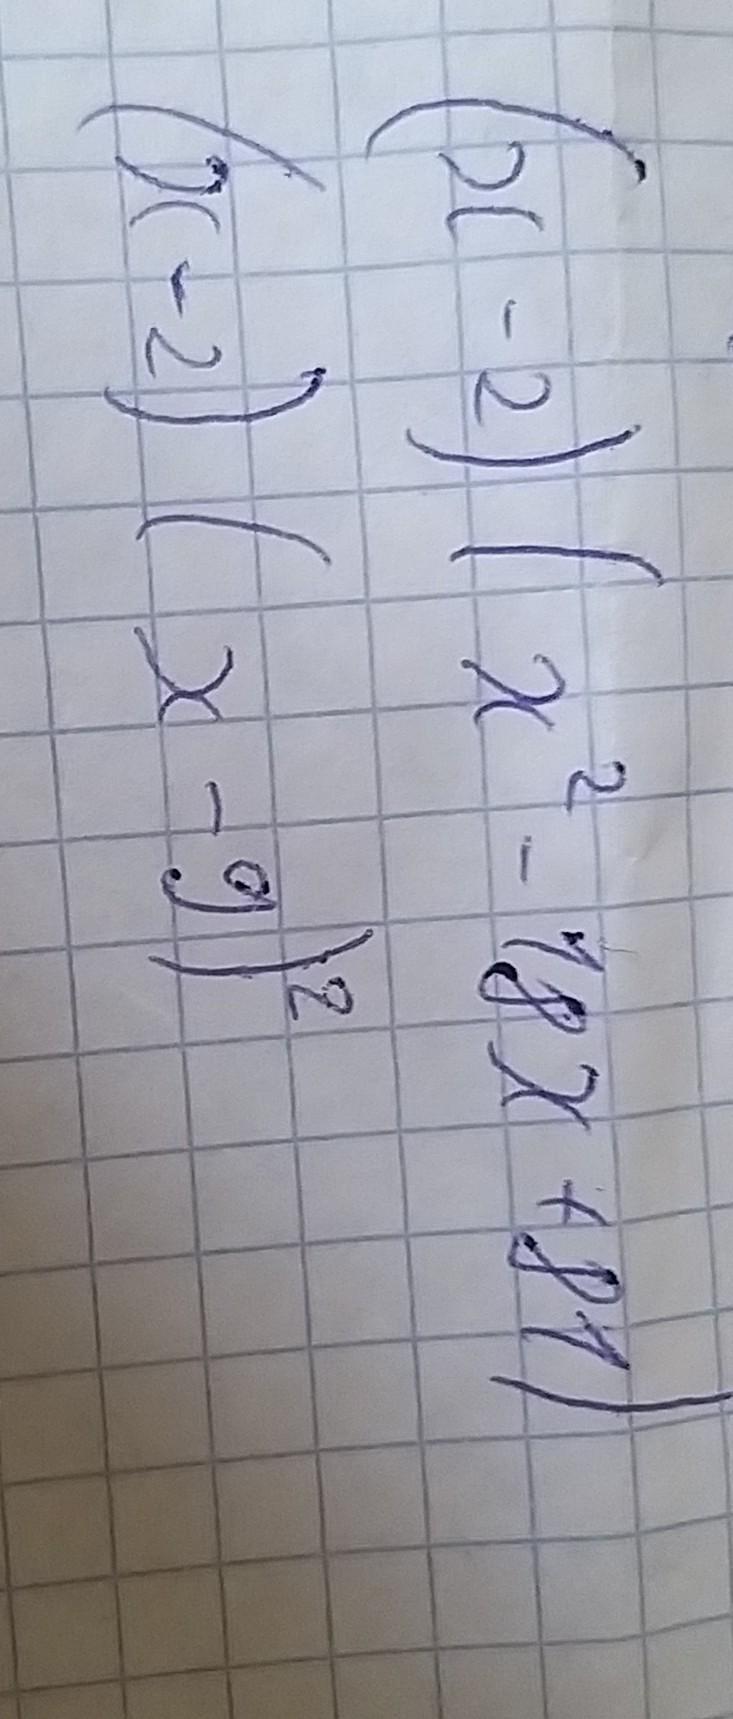 (x - 2)(x² - 18x + 81)
(x - 2)(x - 9)²